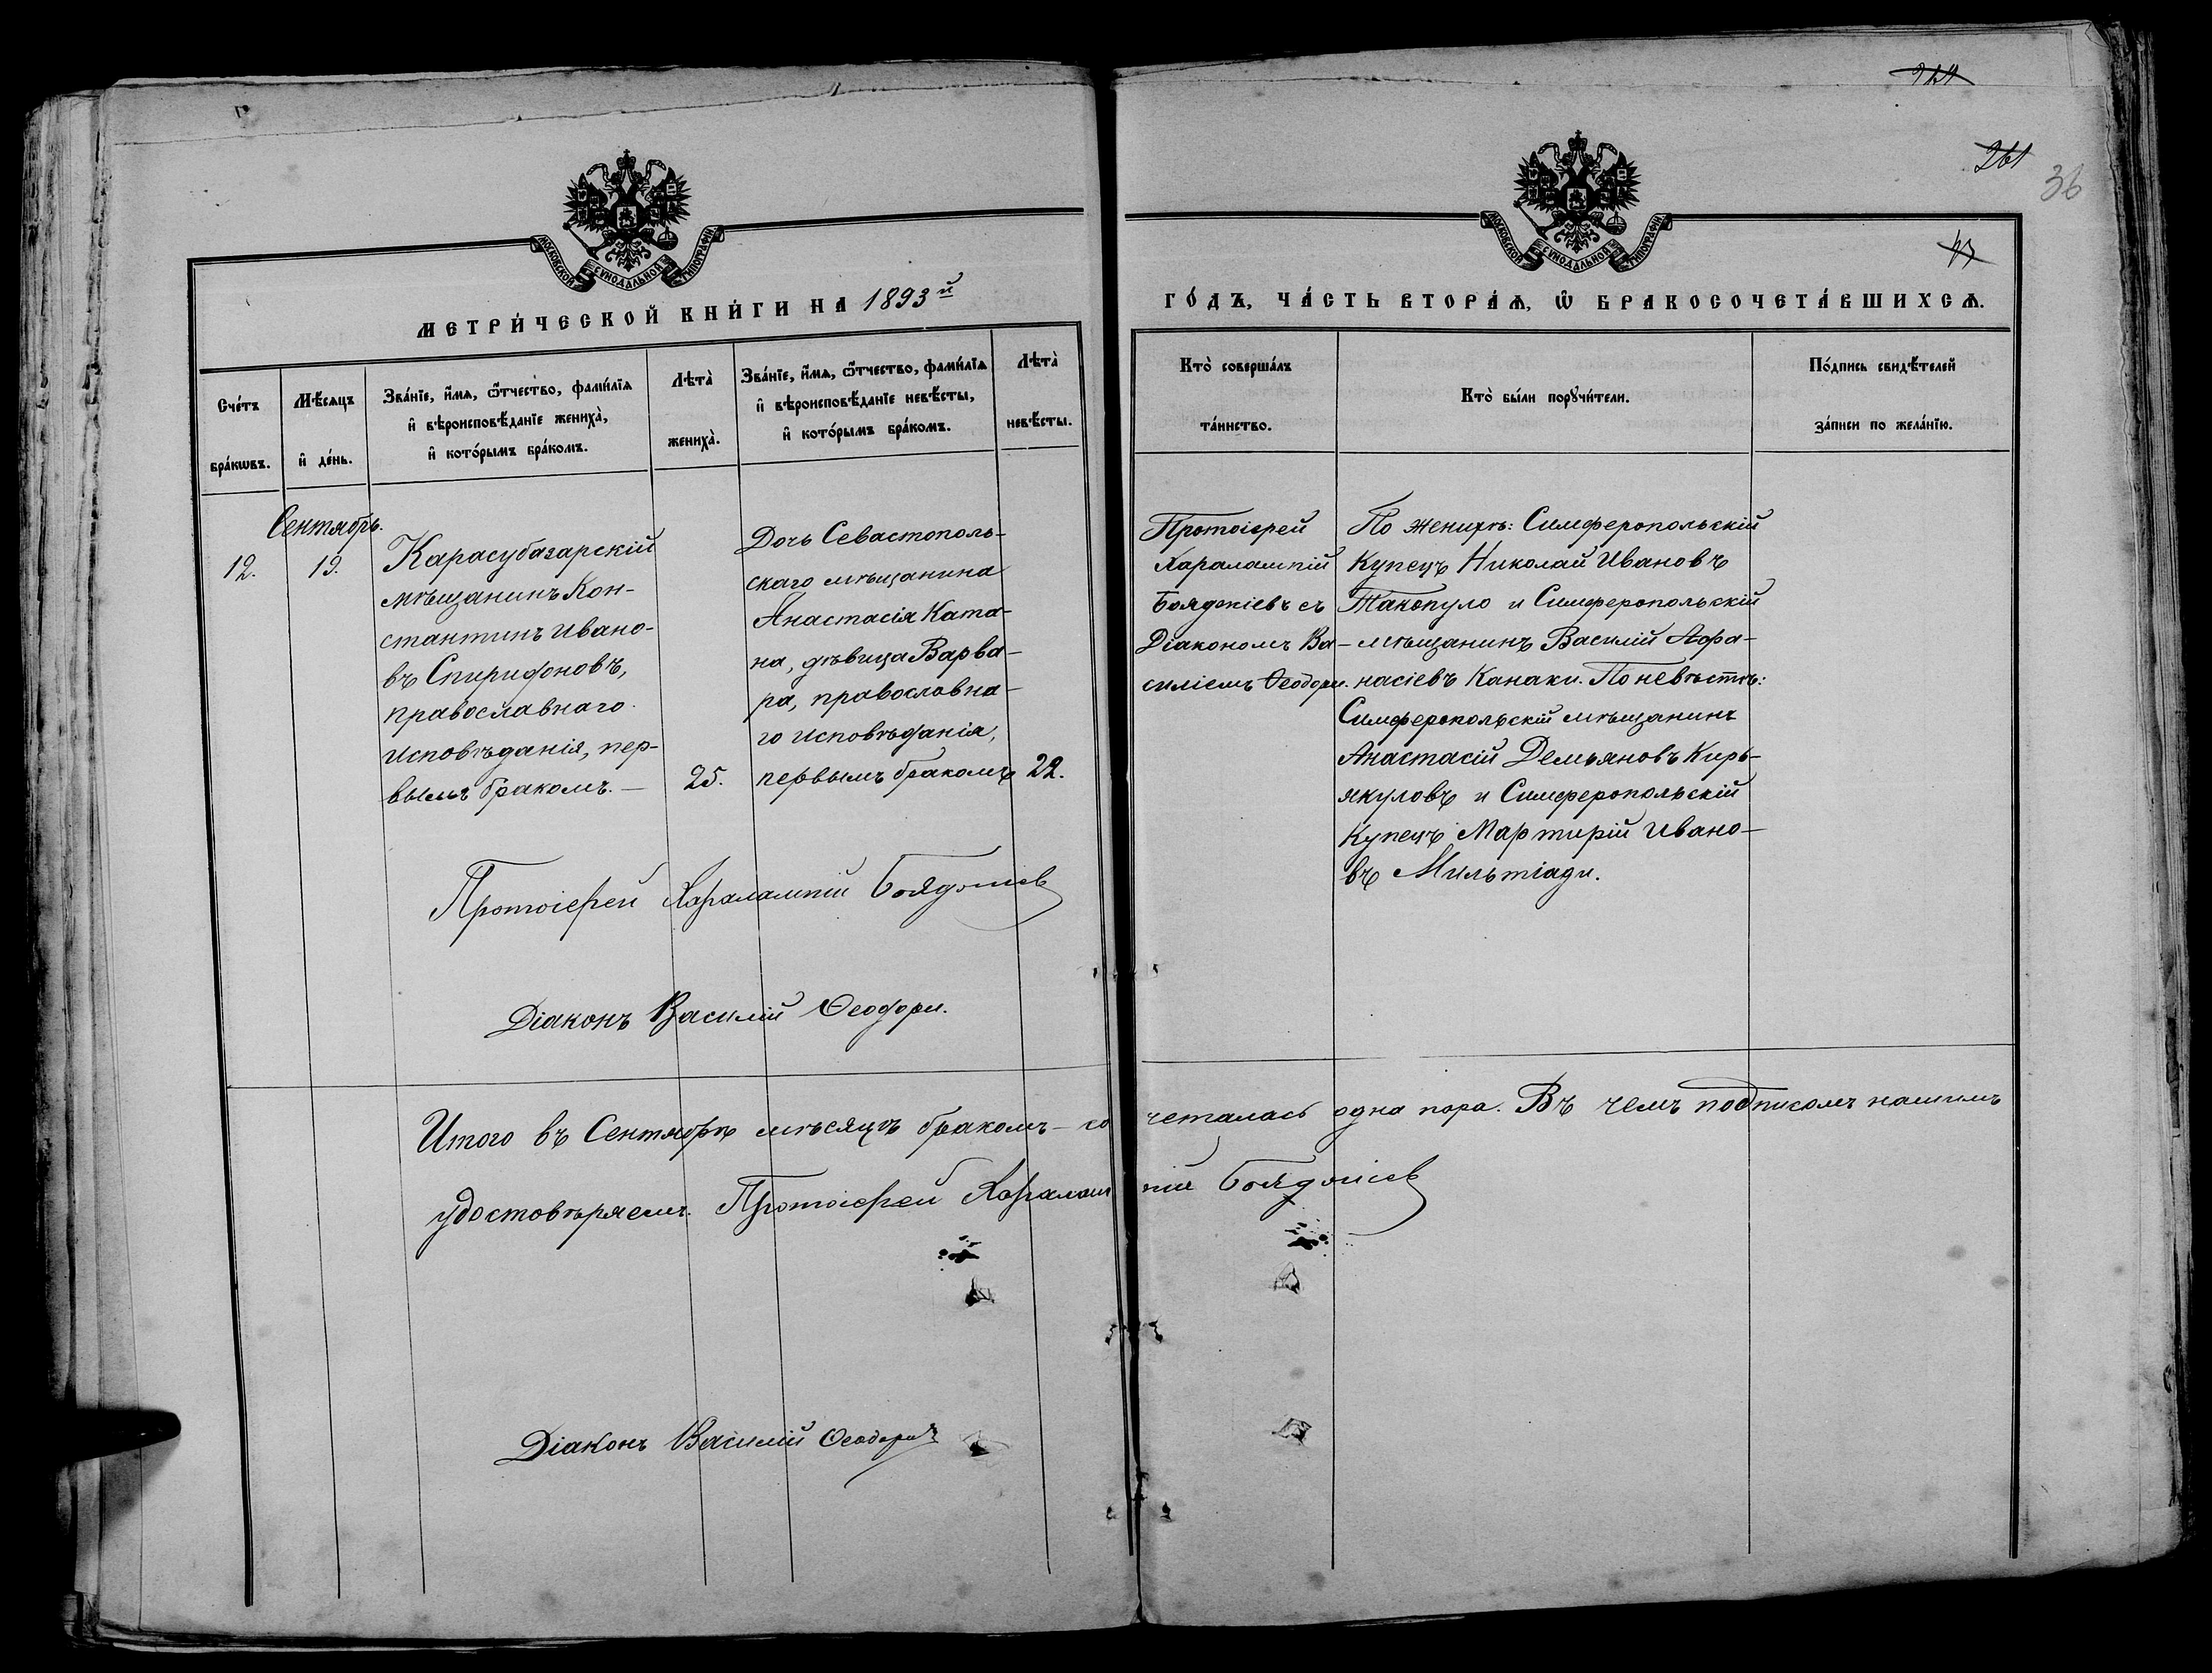 264
261
36
43
МОСКОВСКОЙ СѴНОДАЛЬНОЙ ТИПОГРАФІИ
МОСКОВСКОЙ СѴНОДАЛЬНОЙ ТИПОГРАФІИ
МЕТРИ́ЧЕСКОЙ КНИ́ГИ НА 1893й
ГО́ДЪ, ЧА́СТЬ ВТОРА́Ѧ, Ѿ БРАКОСОЧЕТА́ВШИХСѦ.
Сче́тъ
бра́кѡвъ.
Мѣ́сѧцъ
и҆ де́нь.
Зва́нїе, и҆́мѧ, ѻ҆́тчество, фами́лїѧ
и҆ вѣроисповѣ́данїе жениха̀,
и҆ кото́рымъ бра́комъ.
Лѣта̀
жениха̀.
Зва́нїе, и҆́мѧ, ѻ҆́тчество, фами́лїѧ
и҆ вѣроисповѣ́данїе невѣ́сты,
и҆ кото́рымъ бра́комъ.
Лѣта̀
невѣ́сты.
Кто̀ соверша́лъ
та́инство.
Кто̀ бы́ли порꙋчи́тели.
По́дпись свидѣ́телей
за́писи по жела́нїю.
Сентябрь.
12.
19.
Карасубазарскій
мѣщанинъ Кон-
стантинъ Ивано-
въ Спиридоновъ,
православнаго
исповѣданія, пер-
вымъ бракомъ.—
25.
Дочь Севастополь-
скаго мѣщанина
Анастасія Ката-
на, дѣвица Варва-
ра, православна-
го исповѣданія,
первымъ бракомъ
22.
Протоіерей
Харалампій
Бояджіевъ съ
Діакономъ Ва-
силіемъ Ѳеодори.
По женихѣ: Симферопольскій
Купецъ Николай Ивановъ
Такопуло и Симферопольскій
мѣщанинъ Василій Афа-
насіевъ Канаки. По невѣстѣ:
Симферопольскій мѣщанинъ
Анастасій Демьяновъ Кирь-
якуловъ и Симферопольскій
Купецъ Мартирій Ивано-
въ Мильтіади.
Протоіерей Харалампій Бояджіев
Діаконъ Василій Ѳеодори.
Итого въ Сентябрѣ мѣсяцѣ бракомъ— сочеталась одна пара. Въ чемъ подписомъ нашимъ
удостовѣряемъ. Протоіерей Харалампій Бояджіев
Діаконъ Василій Ѳеодори